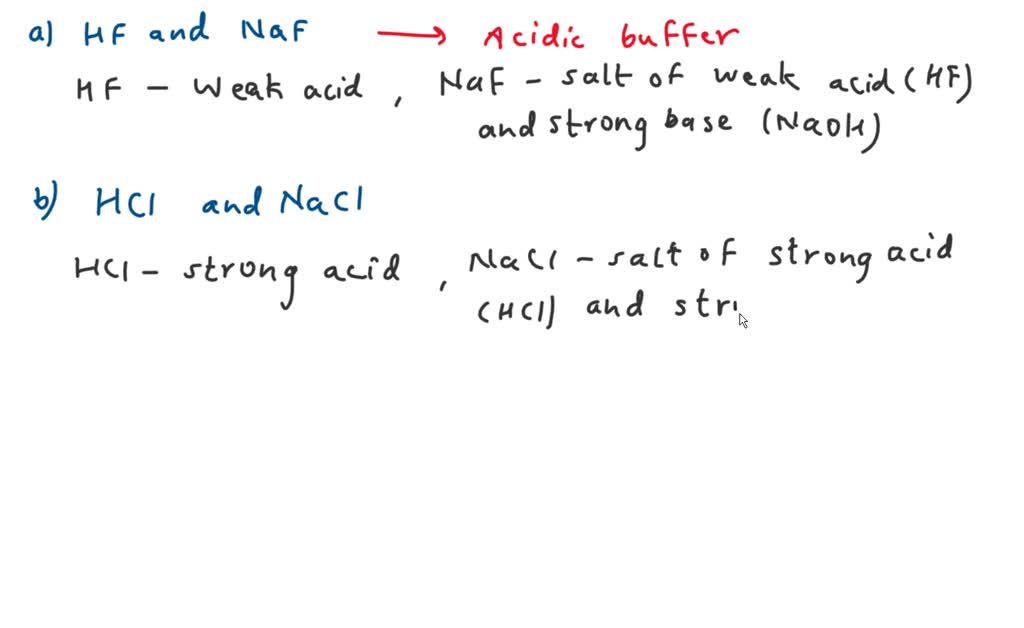 a) HF and NaF → Acidic buffer
HF - Weak acid , NaF - salt of weak acid (HF)
and strong base (NaOH)
b) HCl and NaCl
HCl - strong acid , NaCl - salt of strong acid
(HCl) and str